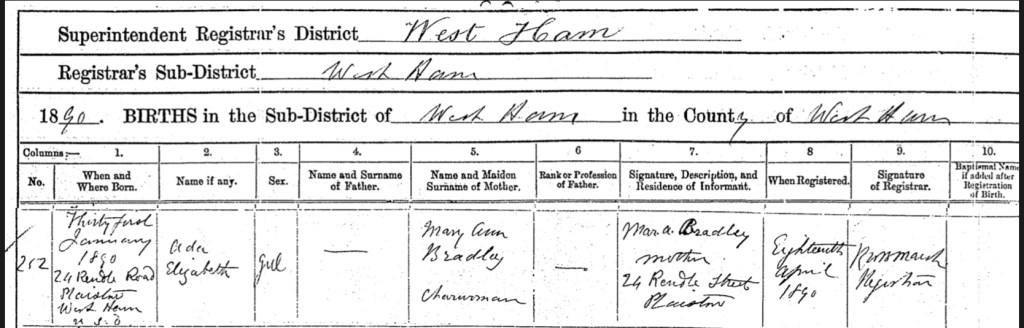 Superintendent Registrar's District West Ham
Registrar's Sub-District West Ham
1890. BIRTHS in the Sub-District of West Ham in the County of West Ham
Columns:— 1. 2. 3. 4. 5. 6. 7. 8 9. 10.
No. When and Where Born. Name if any. Sex. Name and Surname of Father. Name and Maiden Surname of Mother. Rank or Profession of Father. Signature, Description, and Residence of Informant. When Registered. Signature of Registrar. Baptismal Name if added after Registration of Birth.
252
Thirty first
January
1890
24 Rendle Road
Plaistow
West Ham
Ada
Elizabeth
Girl
—
Mary Ann
Bradley
Charwoman
—
Bradley
mother
24 Rendle Street
Plaistow
Eighteenth
April
1890
Registrar